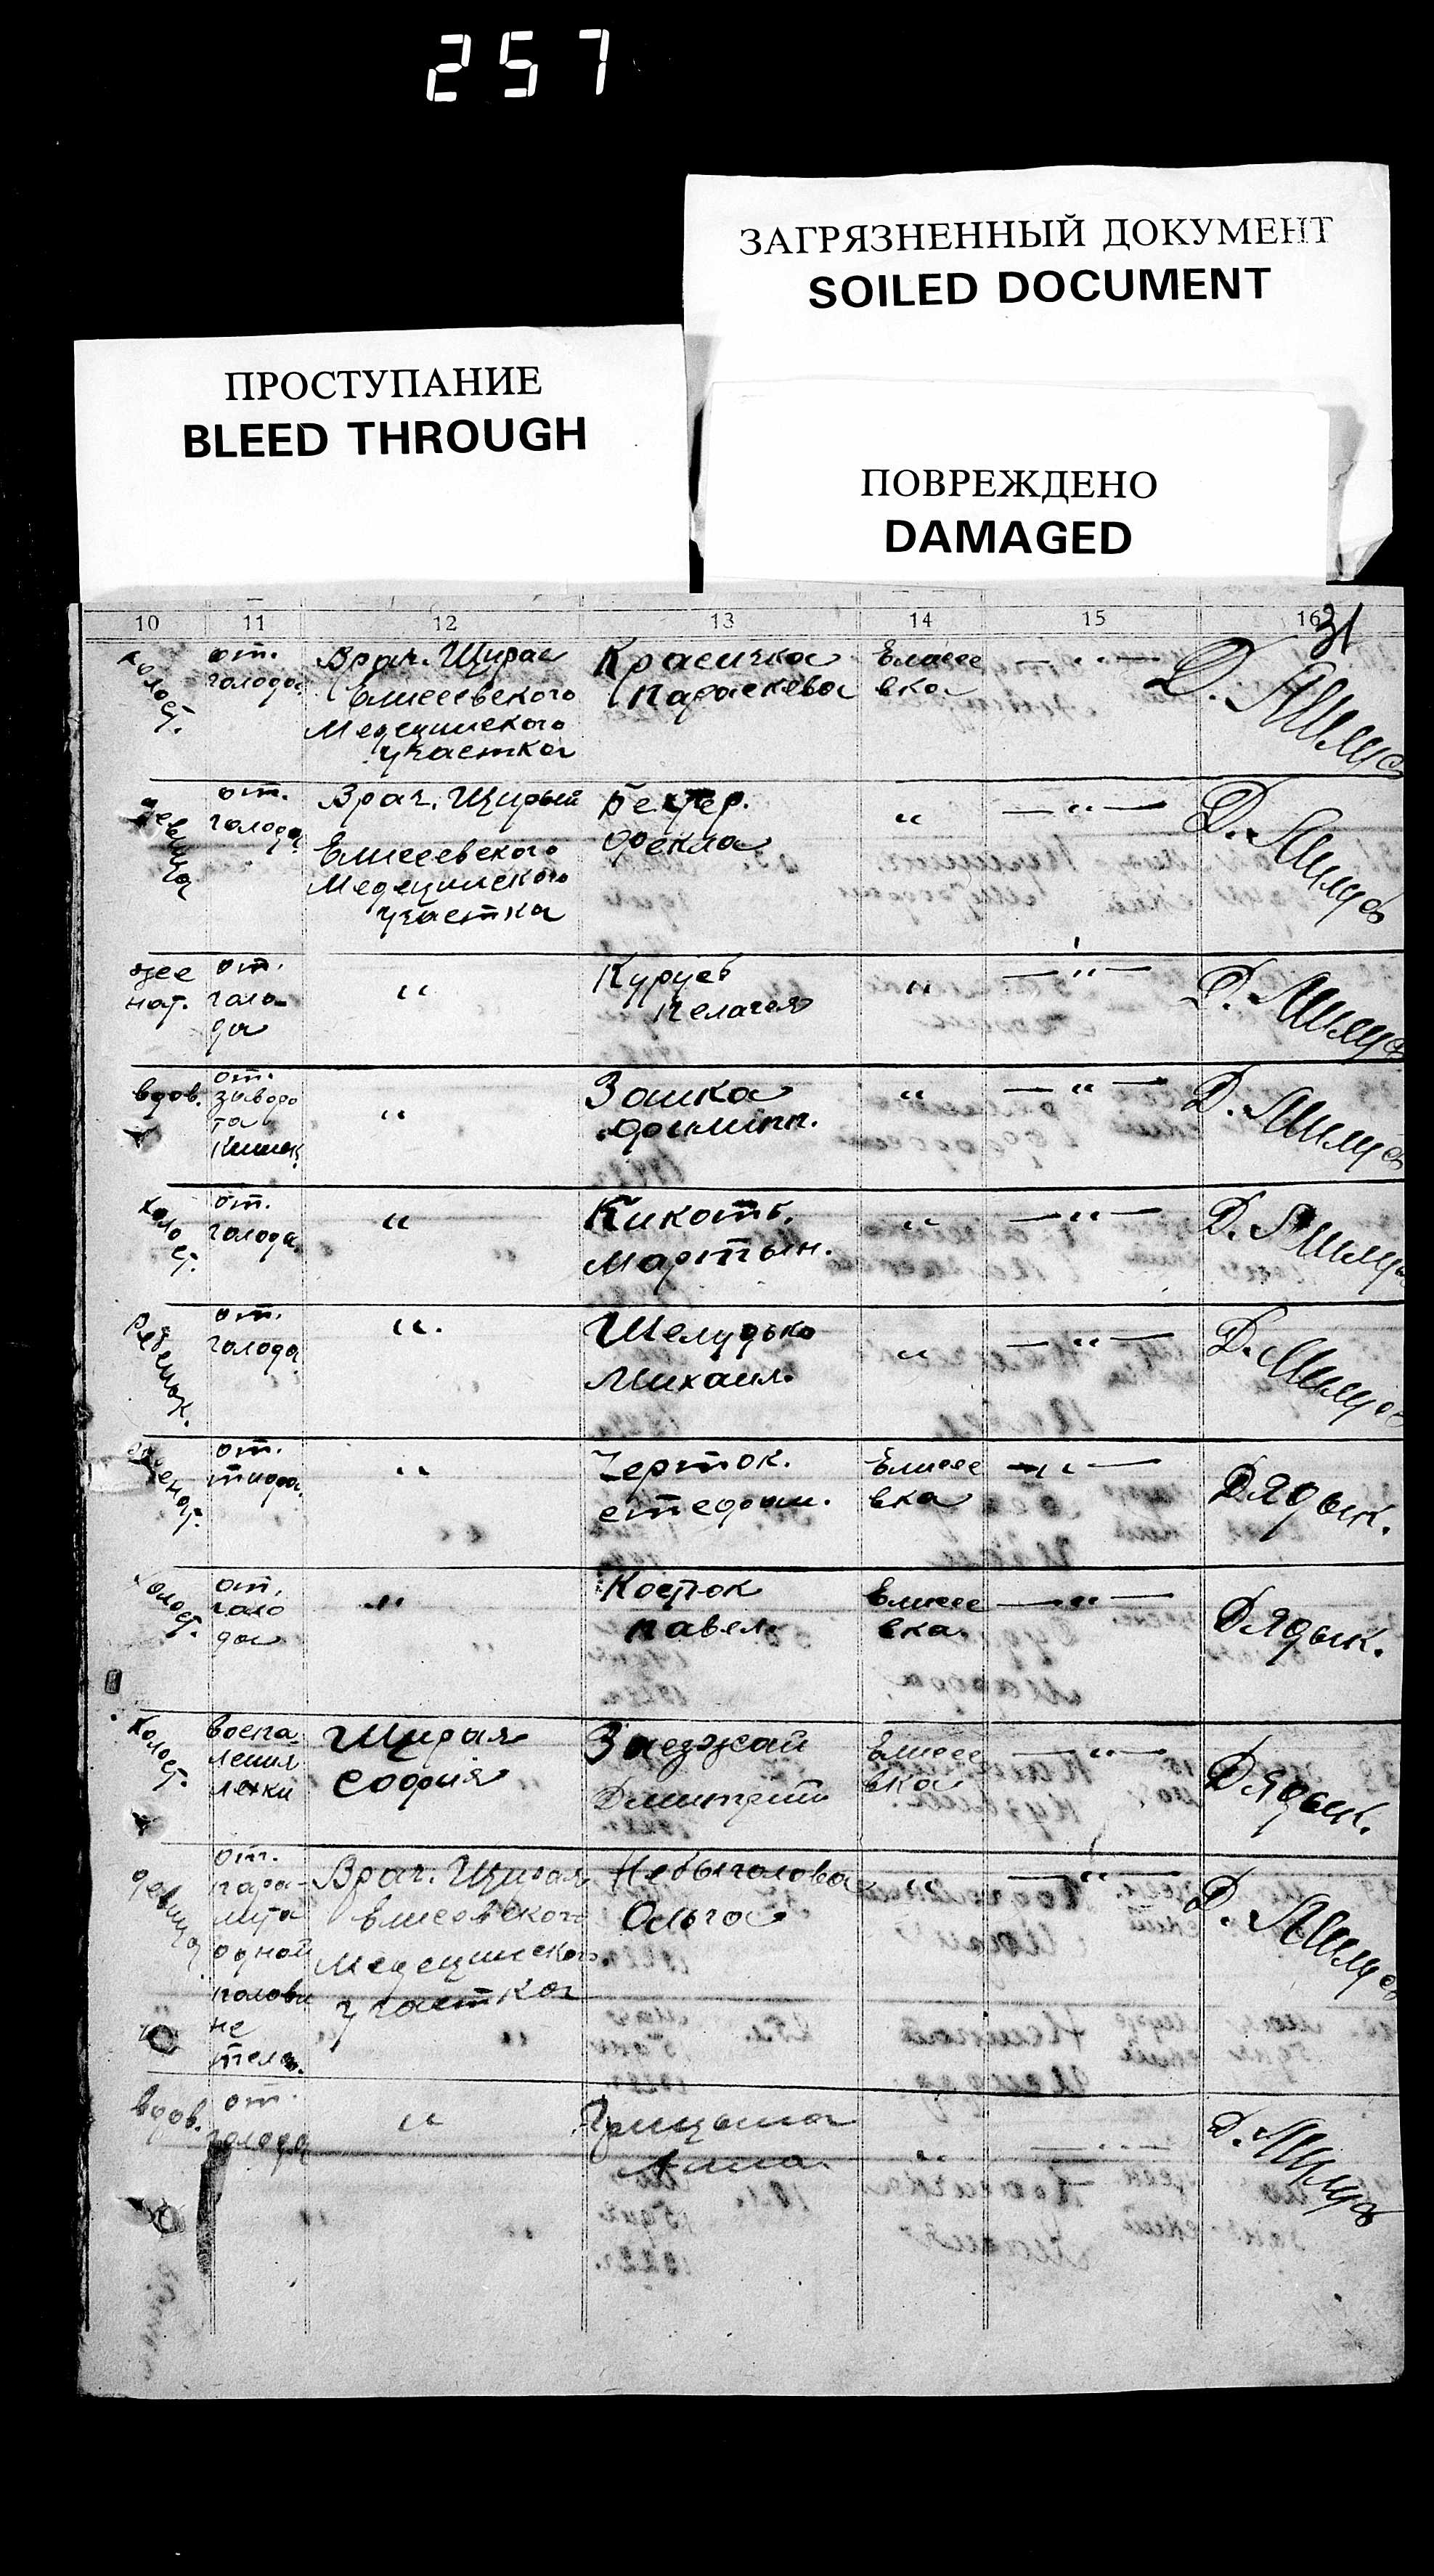 257
ЗАГРЯЗНЕННЫЙ ДОКУМЕНТ
SOILED DOCUMENT
ПРОСТУПАНИЕ
BLEED THROUGH
ПОВРЕЖДЕНО
DAMAGED
10 11 12 13 14 15 16
31
холост. от. голода Врач. Щирая Елисеевского Медецинского участка Параскева Елисее вка — " — Д.
девица от. голода Врач. Щирый Елисеевского Медецинского участка Фекла " — " — Д.
от. голо- да " Пелагея " — " — Д.
вдов. от. заворо та кишек " Зашка Филипп. " — " — Д.
холо ст. от. голода. " Кикоть. Мартын. " — " — Д.
Ребенок. от. голода " Шелудько Михаил. " — " — Д.
от. тифа. " Черток. Стефан. Елисее вка — " — Дядык.
холост. от. голо да " Костюк Павел. Елисее вка. — " — Дядык.
холост. воспа- ления легки Щирая София Заезжай Дмитрий Елисее вка — " — Дядык.
девица от. пара- лича одной полови не тела. Врач. Щирая Елисеевского Медецинского участка Небыголова Ольга " — " — Д.
вдов. от. голода " Анна. " — " — Д.